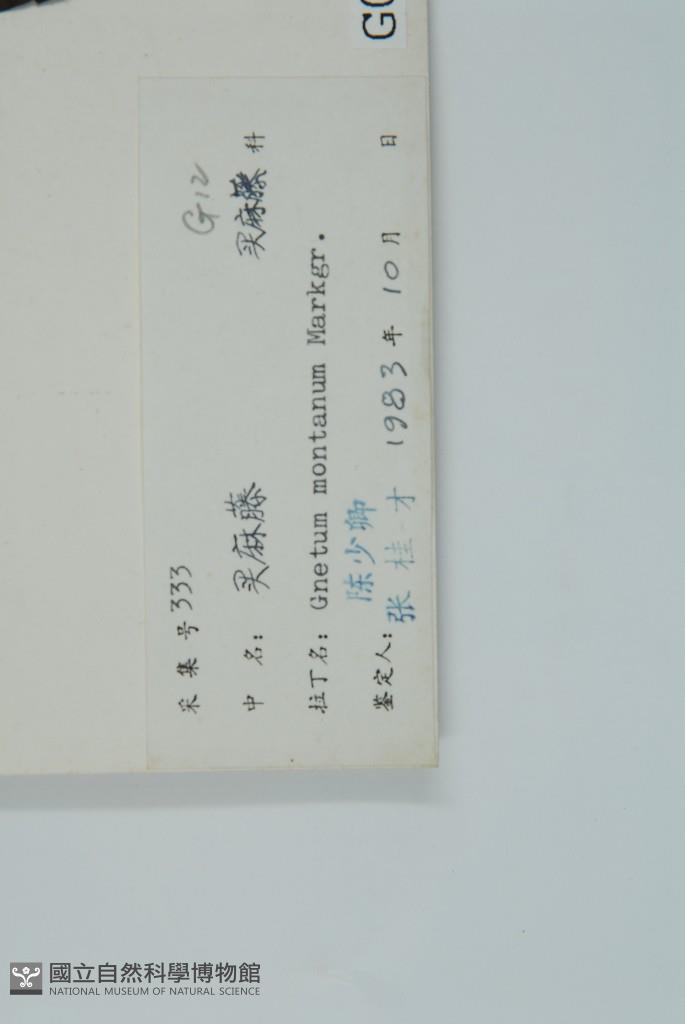 G
G12
采集号 333
买麻藤科
中 名: 买麻藤
拉丁名: Gnetum montanum Markgr.
陈少卿
鉴定人: 张桂才 1983年10月 日
國立自然科學博物館
NATIONAL MUSEUM OF NATURAL SCIENCE